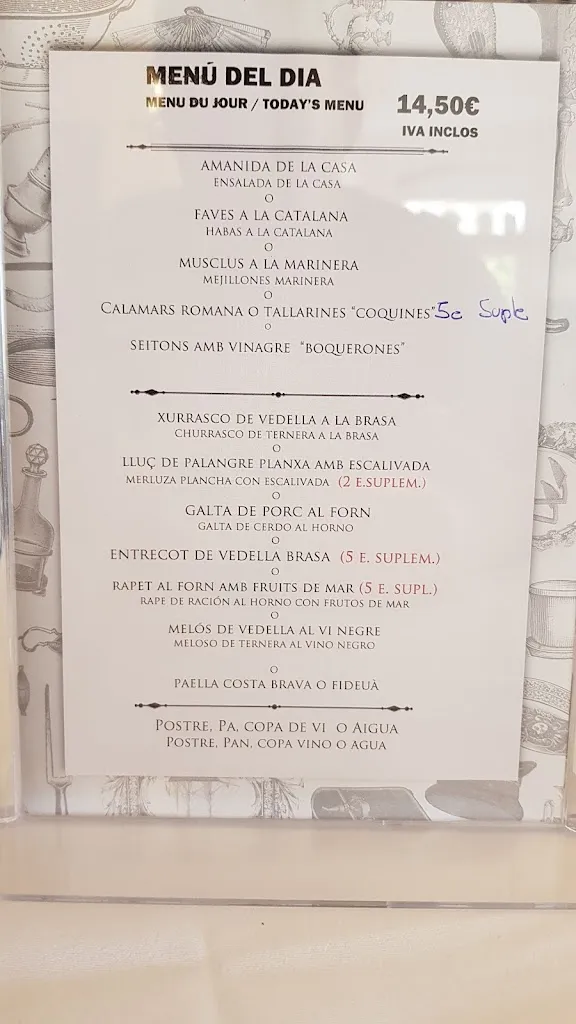 MENÚ DEL DIA
MENU DU JOUR / TODAY'S MENU
14,50€
IVA INCLOS
AMANIDA DE LA CASA
ENSALADA DE LA CASA
O
FAVES A LA CATALANA
HABAS A LA CATALANA
O
MUSCLUS A LA MARINERA
MEJILLONES MARINERA
O
CALAMARS ROMANA O TALLARINES "COQUINES" 5e Suple
O
SEITONS AMB VINAGRE "BOQUERONES"
XURRASCO DE VEDELLA A LA BRASA
CHURRASCO DE TERNERA A LA BRASA
O
LLUÇ DE PALANGRE PLANXA AMB ESCALIVADA
MERLUZA PLANCHA CON ESCALIVADA (2 E.SUPLEM.)
O
GALTA DE PORC AL FORN
GALTA DE CERDO AL HORNO
O
ENTRECOT DE VEDELLA BRASA (5 E. SUPLEM.)
O
RAPET AL FORN AMB FRUITS DE MAR (5 E. SUPL.)
RAPE DE RACIÓN AL HORNO CON FRUTOS DE MAR
O
MELÓS DE VEDELLA AL VI NEGRE
MELOSO DE TERNERA AL VINO NEGRO
O
PAELLA COSTA BRAVA O FIDEUÀ
POSTRE, PA, COPA DE VI O AIGUA
POSTRE, PAN, COPA VINO O AGUA